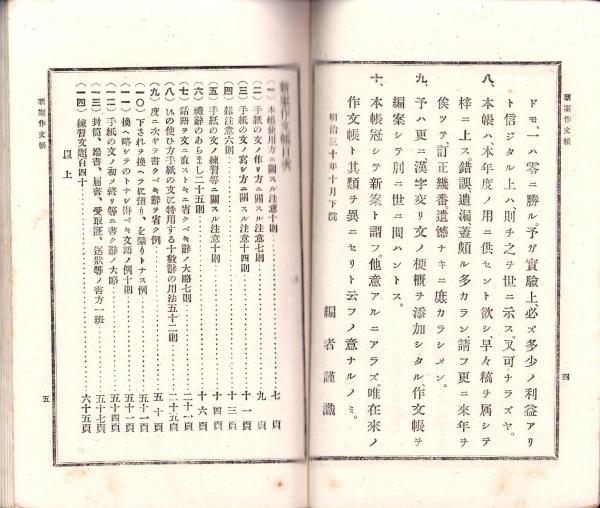 新案作文帳
四
ドモ、一ハ零ニ勝ル予ガ實驗上、必ズ多少ノ利益アリ
ト信ジタル上ハ、則チ之ヲ世ニ示ス。又可ナラズヤ。
八、本帳ハ、本年度ノ用ニ供セント欲シ、早々稿ヲ属シテ
梓ニ上ス、錯誤遺漏蓋頗ル多カラン請フ更ニ来年ヲ
俟ツテ、訂正幾番遺憾ナキニ庶カラシメン。
九、予ハ更ニ漢字交リ文ノ梗概ヲ添加シタル、作文帳ヲ
編案シテ別ニ世ニ問ハントス。
十、本帳冠シテ新案ト謂フ。他意アルニアラズ。唯在来ノ
作文帳ト其類ヲ異ニセリト云フノ意ナルノミ。
明治三十年十月下浣
編者謹識
新案作文帳
五
新案作文帳目次
(一)本帳使用方ニ關スル注意十則 七頁
(二)手紙の文ノ作リ方ニ關スル注意七則 九頁
(三)手紙の文ノ寫シ方ニ關スル注意十四則 十一頁
(四)雜注意六則 十三頁
(五)手紙の文ノ練習等ニ關スル注意十則 十四頁
(六)禮辭のあらまし二十五則 十六頁
(七)話語ヲ文ニ直ストキニ省クベキ辭ノ大略七則 二十一頁
(八)いの使ひ方手紙の文に特用する十數辭の用法五十二則 二十五頁
(九)度ニ次ギヲ書クベキ辭ヲ省ク例 五十頁
(一〇)下されヲ換ヘテに預り、を蒙りトナス例 五十一頁
(一一)換ヘ略シテのトナシ得ベキ文語ノ例十則 五十一頁
(一二)手紙の文ノ初メ終リ等ニ書ク辭ノ大略 五十四頁
(一三)封筒、端書、屆書、受取証、送狀等ノ書方一班 五十七頁
(一四)練習文題百四十 六十五頁
以上